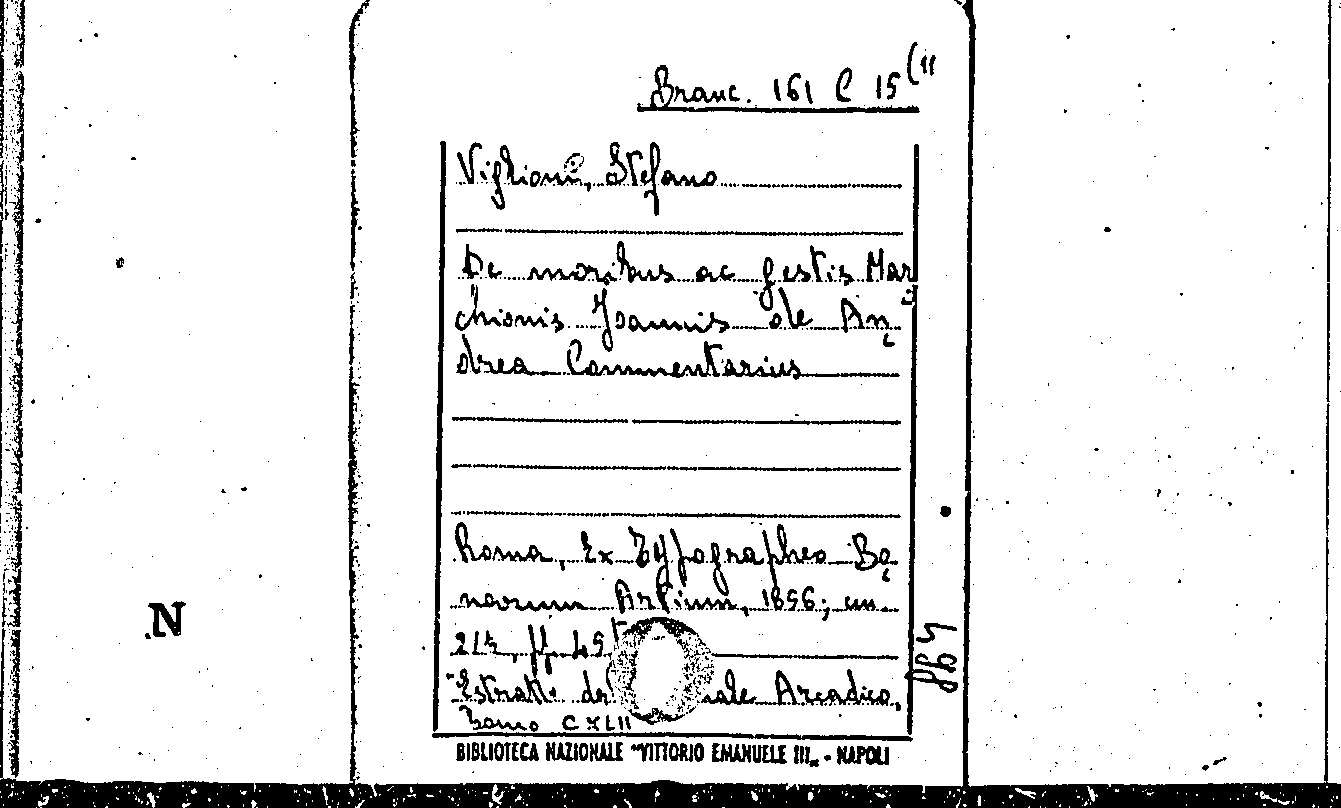 Branc. 161 C 15 (11
Viglioni, Stefano
De moribus ac gestis Mar
chionis Joannis de An
drea Commentarius
Roma, Ex Typographeo Bo
narum Artium, 1856; cm.
21½, pp.
Estratto dal Giornale Arcadico,
Tomo CXLII
N
BIBLIOTECA NAZIONALE "VITTORIO EMANUELE III" - NAPOLI